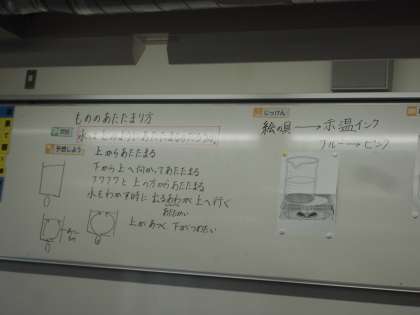 もののあたたまり方
問題 水はどのようにあたたまるのだろうか。
予想しよう 上からあたたまる
下から上へ向かってあたたまる
フワフワと上の方からあたたまる
水をわかす時に出るあわが上へ行く
あたたかい
上があつく下がつめたい
じっけん
絵の具→示温インク
ブルー→ピンク